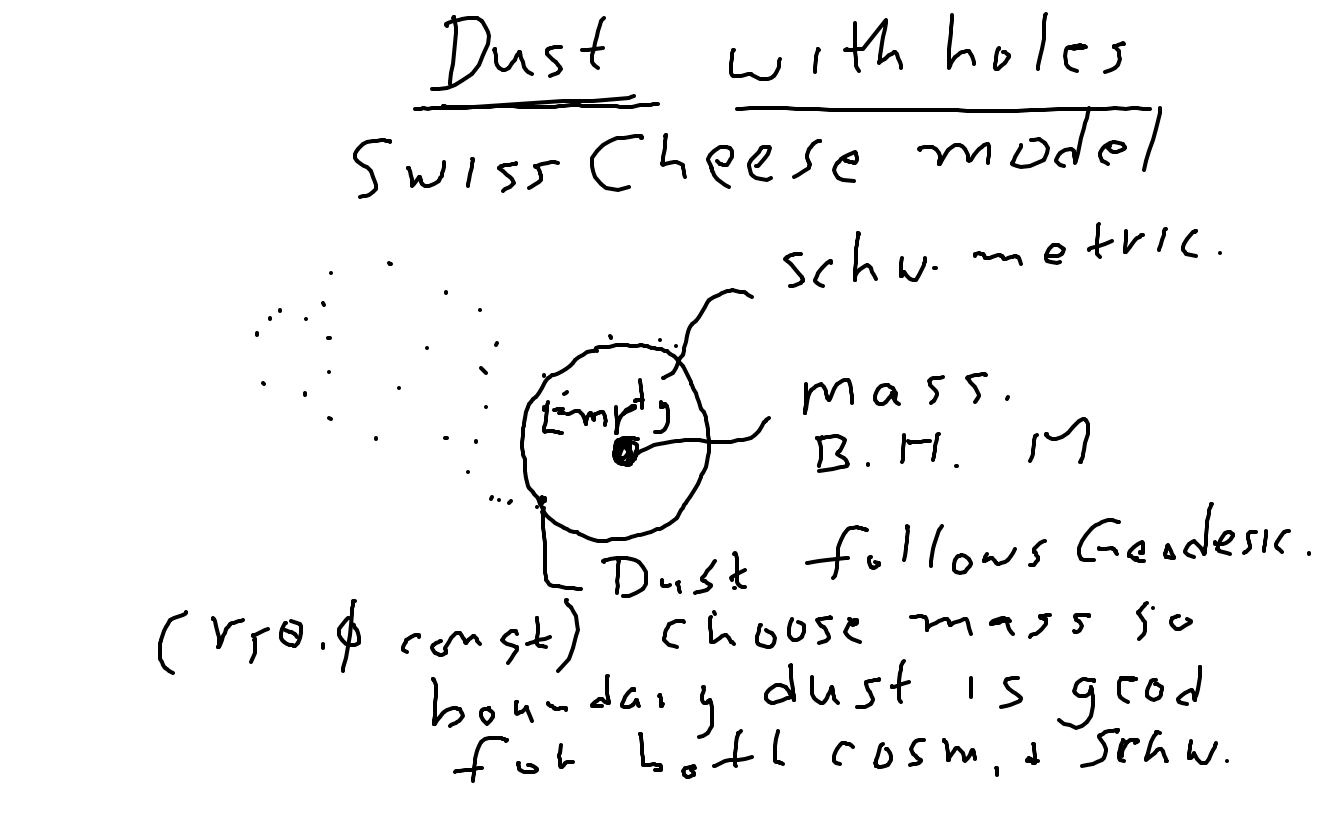 Dust with holes
Swiss Cheese model
schw. metric.
Empty
mass.
B.H. M
Dust follows Geodesic.
(r,θ.ϕ const) choose mass so
boundary dust is geod
for both cosm. & Schw.